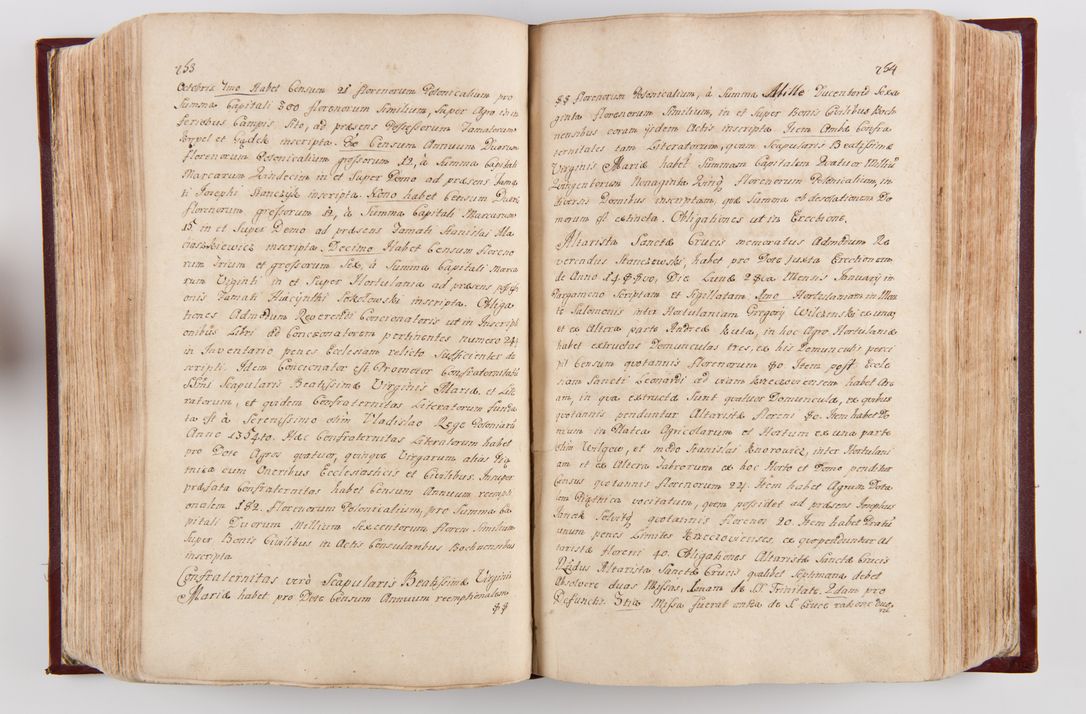 753
Octobris 7mo Habet Censum 21 florenorum Polonicalium pro
Summa Capitali 300 florenorum Similium, Super Agro in in
ferioribus Campis Sito, ad præsens Possessorum Famatorum
et Gądek inscripta. Censum Annuum Duorum
florenorum Polonicalium grossorum 12, à Summa Capitali
Marcarum Quindecim in et Super Domo ad præsens Fama
ti Josephi Stanczyk inscripta. Nono habet Censum Duorū
florenorum grossorum 12, à Summa Capitali Marcarum
15 in et Super Domo ad præsens Famati Stanislai Ma
ciaszkiewicz inscripta. Decimo Habet Censum floreno
rum Trium et grossorum Sex, à Summa Capitali Marca
rum Viginti in et Super Hortulania ad præsens possessi
onis Famati Hiacÿnthi Sokołowski inscripta. Obliga
tiones Admodum Reverendi Concionatoris ut in Inscripti
onibus Libri ad Concionatorem pertinentes numero 24
in Inventario penes Ecclesiam relicto Sufficienter de
scripti. Idem Concionator est Promotor Confraternitatis
Scapularis Beatissimæ Virginis Mariæ et Litte
ratorum, et quidem Confraternitas Literatorum funda
ta est à Serenissimo olim Vladislao Rege Poloniarū
Anno Hæc Confraternitas Literatorum habet
pro Dote Agros quatuor, quinque Virgarum alias
cum Oneribus Ecclesiasticis et Civilibus. Insuper
præfata Confraternitas habet Censum Annuum reempti
onalem 182. florenorum Polonicalium, pro Summa Ca
pitali Duorum Millium Sexcentorum floren: Similium
Super Bonis Civilibus in Actis Consularibus Bochnensibus
inscripta.
Confraternitas verò Scapularis Beatissimæ Virginis
Mariæ habet pro Dote Censum Annuum reemptionalem
88
754
88 florenorum Polonicalium, à Summa Mille Ducentorū Sexa
ginta florenorum Similium, in et Super Bonis Civilibus Boch
nensibus coram ijsdem Actis inscripta. Item Ambæ Confra
ternitates tam Literatorum, quam Scapularis Beatissimæ
Virginis Mariæ habet Summam Capitalem Quatuor Milliū
Quingentorum Nonaginta Florenorum Polonicalium, in
Diversis Domibus inscriptam, quæ Summa ob desolationem Do
morum est extincta. Obligationes ut in Erectione.
Altarista Sanctæ Crucis memoratus Admodum Re
verendus Stanczewski, habet pro Dote Juxta Erectionem
de Anno Die Lunæ 28va Mensis Januarij in
Pargameno Scriptam et Sigillatam. 1mo Hortulaniam in Mon
te Salomonis inter Hortulaniam Gregorij Wilczenski ex una
et ex Altera parte Andreæ Kuta, in hoc Agro Hortulaniæ
habet extructas Domunculas tres, ex his Domunculis perci
pit Censum quotannis florenorum 80. Item post Eccle
siam Sancti Leonardi ad viam habet Are
am, in qua extructæ Sunt quatuor Domunculæ, ex quibus
quotannis penduntur Altaristæ floreni 80. Item habet Do
mum in Platea Agricolarum et Hortum ex una parte
olim et modo Stanislai Knorowicz, inter Hortulani
am et ex Altera Fabrorum ex hoc Horto et Domo penditur
Census quotannis florenorum 224. Item habet Agrum Dota
lem vocitatum, quem possidet ad præsens Josephus
quotannis florenos 20. Item habet Pratu
anum penes Limites ex quo penduntur Al
taristæ floreni 40. Obligationes Altaristæ Sanctæ Crucis
Rndus Altarista Sanctæ Crucis qualibet Septimana debet
Absolvere duas Missas, 1mam de SS Trinitate. 2dam pro
Defunctis. 3tia Missa fuerat antea de S. Cruce ratione